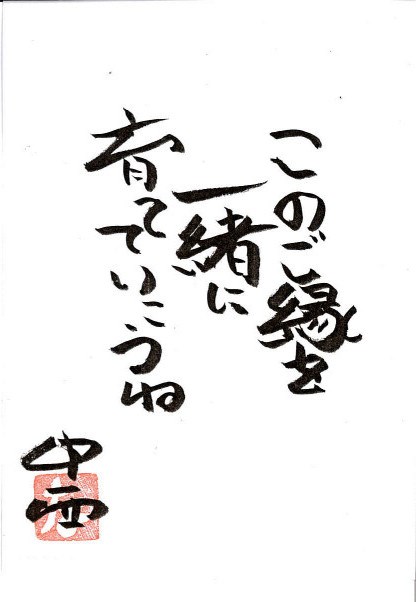 このご縁を
一緒に
育てていこうね
中西